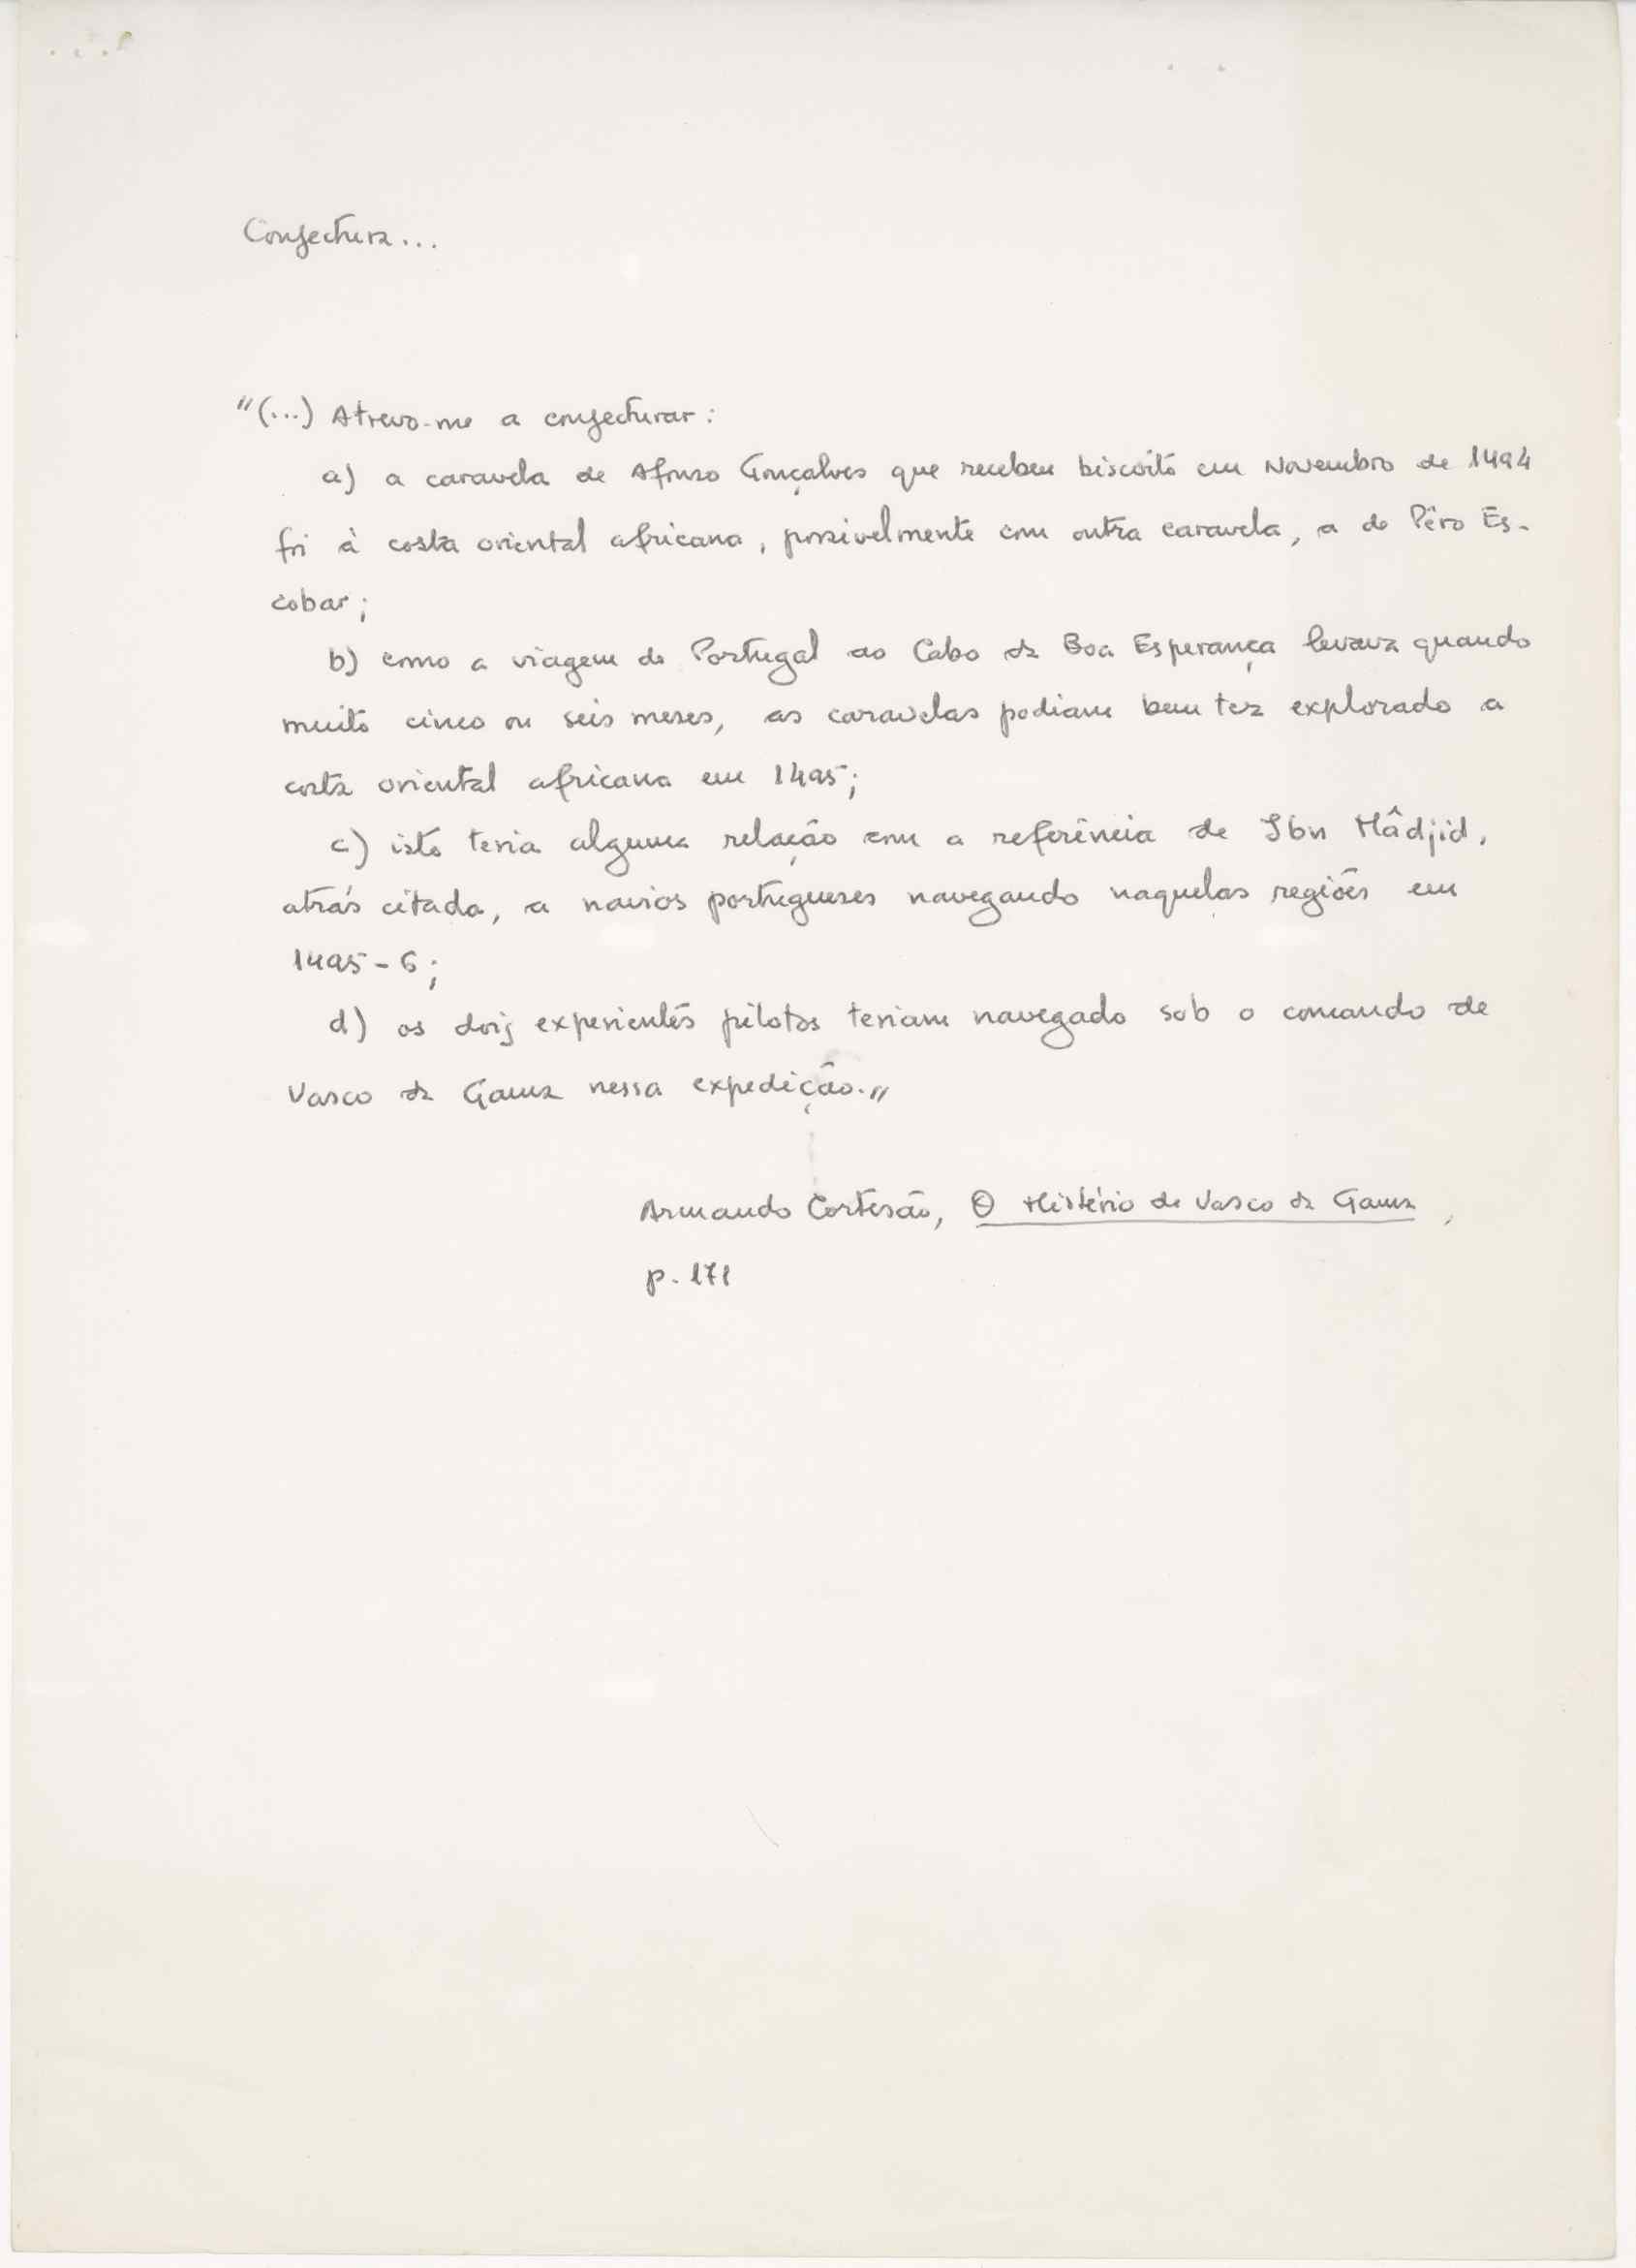 Conjectura...
"(...) Atrevo-me a conjecturar:
a) a caravela de Afonso Gonçalves que recebeu biscoito em Novembro de 1494
foi à costa oriental africana, possivelmente com outra caravela, a de Pêro Es-
cobar;
b) como a viagem de Portugal ao Cabo da Boa Esperança levava quando
muito cinco ou seis meses, as caravelas podiam bem ter explorado a
costa oriental africana em 1495;
c) isto teria alguma relação com a referência de Ibn Mâdjid,
atrás citada, a navios portugueses navegando naquelas regiões em
1495-6;
d) os dois experientes pilotos teriam navegado sob o comando de
Vasco da Gama nessa expedição."
Armando Cortesão, O Mistério de Vasco da Gama,
p. 171